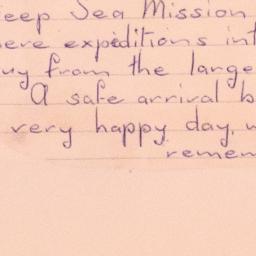 eep Sea Mission
ere expeditions int
uy from the large
A safe arrival b
very happy day, w
remem